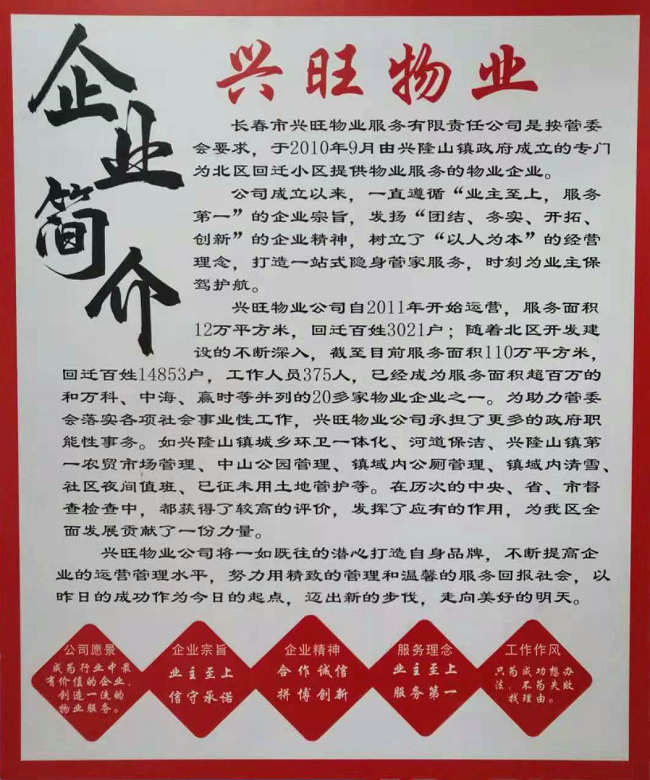 企业简介
兴旺物业
长春市兴旺物业服务有限责任公司是按管委
会要求，于2010年9月由兴隆山镇政府成立的专门
为北区回迁小区提供物业服务的物业企业。
公司成立以来，一直遵循“业主至上，服务
第一”的企业宗旨，发扬“团结、务实、开拓、
创新”的企业精神，树立了“以人为本”的经营
理念，打造一站式隐身管家服务，时刻为业主保
驾护航。
兴旺物业公司自2011年开始运营，服务面积
12万平方米，回迁百姓3021户；随着北区开发建
设的不断深入，截至目前服务面积110万平方米，
回迁百姓14853户，工作人员375人，已经成为服务面积超百万的
和万科、中海、赢时等并列的20多家物业企业之一。为助力管委
会落实各项社会事业性工作，兴旺物业公司承担了更多的政府职
能性事务。如兴隆山镇城乡环卫一体化、河道保洁、兴隆山镇第
一农贸市场管理、中山公园管理、镇域内公厕管理、镇域内清雪、
社区夜间值班、已征未用土地管护等。在历次的中央、省、市督
查检查中，都获得了较高的评价，发挥了应有的作用，为我区全
面发展贡献了一份力量。
兴旺物业公司将一如既往的潜心打造自身品牌，不断提高企
业的运营管理水平，努力用精致的管理和温馨的服务回报社会，以
昨日的成功作为今日的起点，迈出新的步伐，走向美好的明天。
公司愿景
成为行业中最
有价值的企业，
创造一流的
物业服务。
企业宗旨
业主至上
信守承诺
企业精神
合作诚信
拼博创新
服务理念
业主至上
服务第一
工作作风
只为成功想办
法，不为失败
找理由。